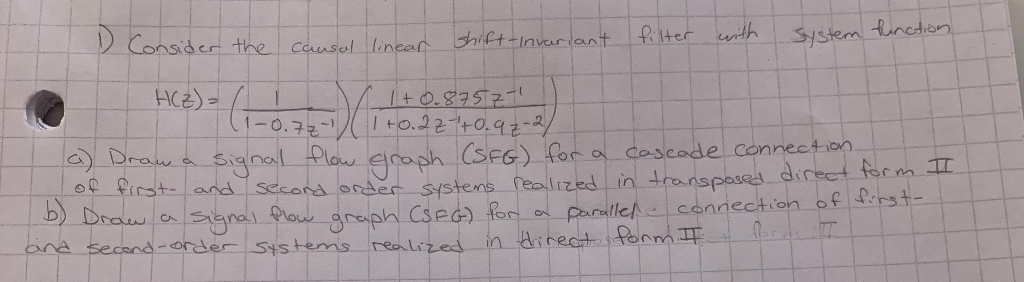 1) Consider the causal linear shift-invariant filter with system function
H(z) = (1/(1-0.7z⁻¹)) ((1+0.875z⁻¹)/(1+0.2z⁻¹+0.9z⁻²))
a) Draw a signal flow graph (SFG) for a cascade connection
of first- and second order systems realized in transposed direct form II
b) Draw a signal flow graph (SFG) for a parallel connection of first-
and second-order systems realized in direct form II